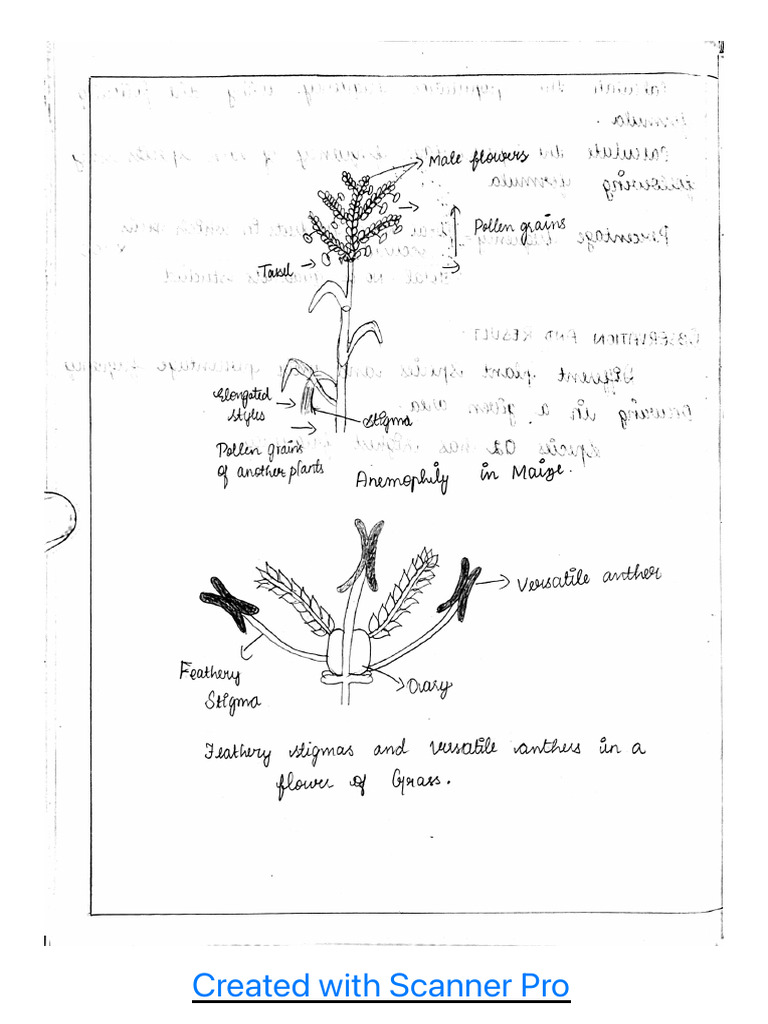 Male flowers
Pollen grains
Tassel
Elongated
styles
Stigma
Pollen grains
of another plants
Anemophily in Maize.
Versatile anther
Feathery
Stigma
Ovary
Feathery stigmas and versatile anthers in a
flower of Grass.
Created with Scanner Pro